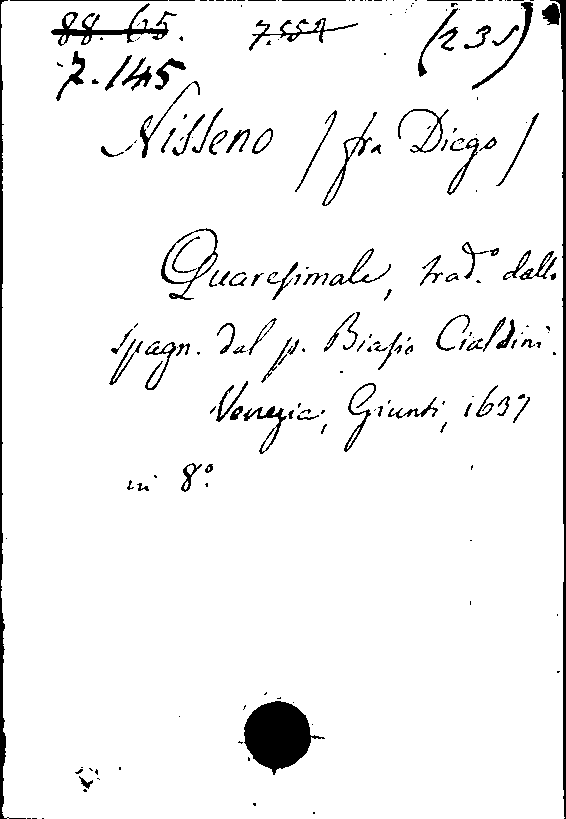 88. 65. 7.559 (23s)
7.145
Nisseno / fra Diego /
Quaresimale, trad.º dallo
spagn. dal p. Biasio Cialdini.
Venezia, Giunti, 1637
in 8º